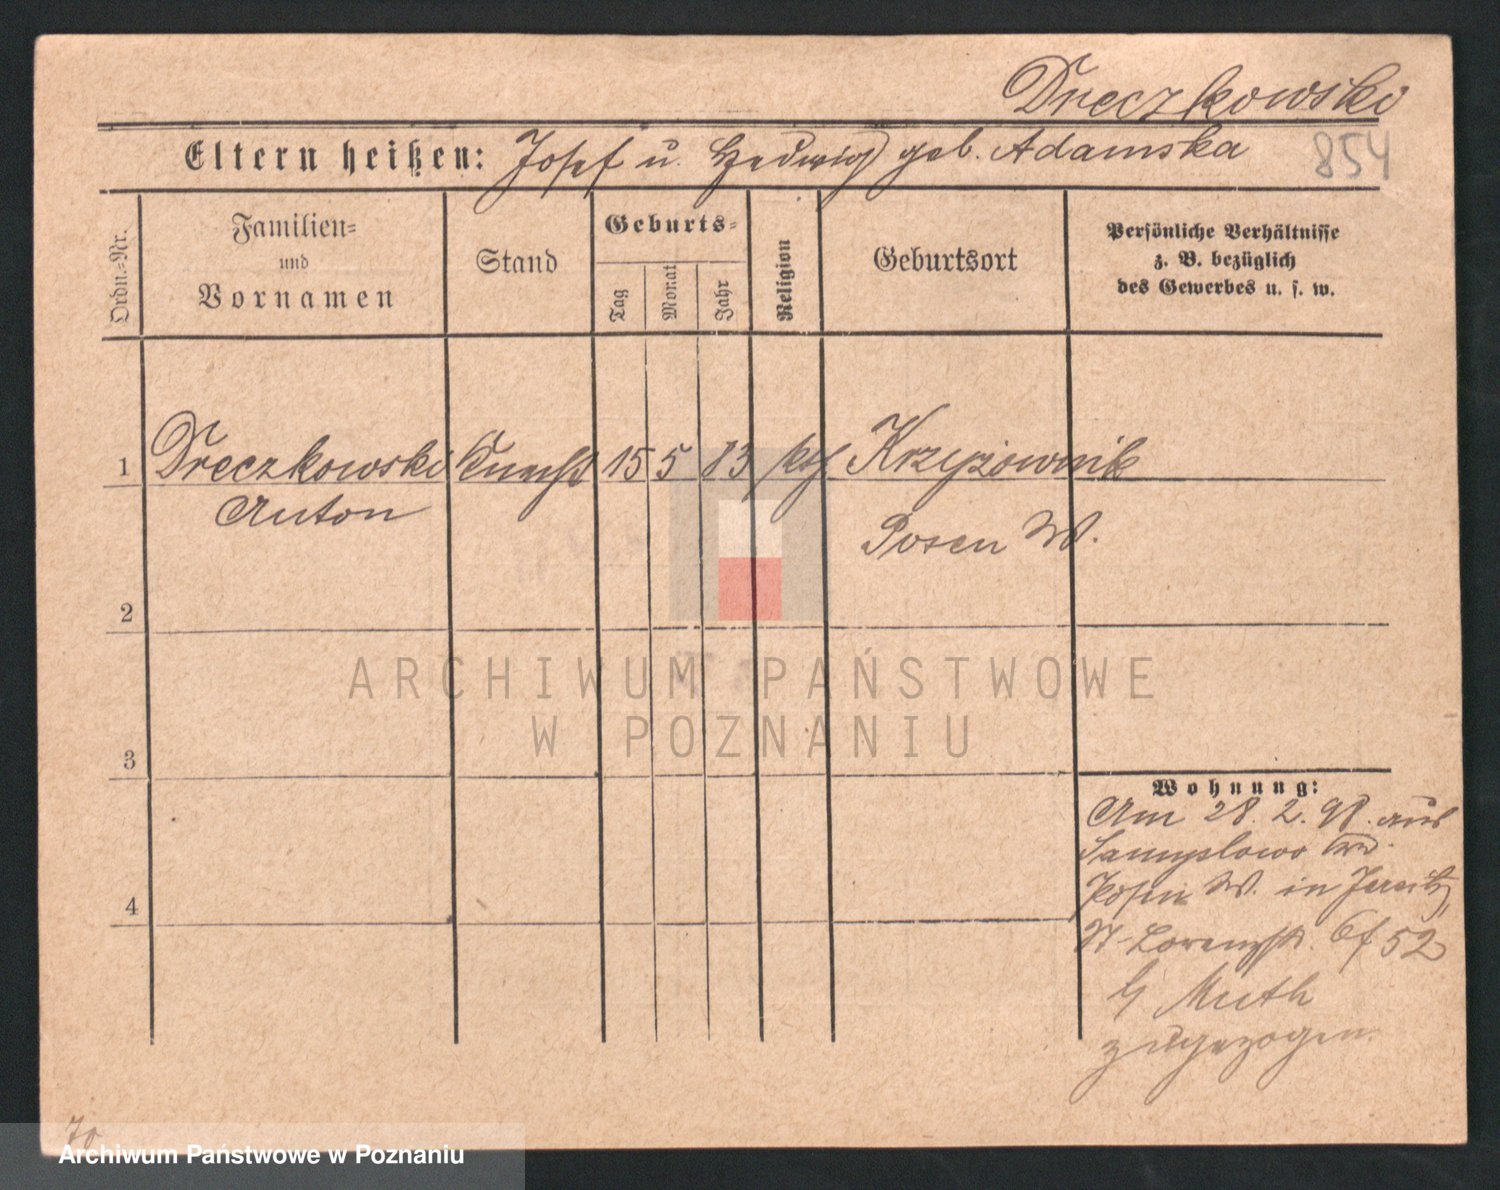 Dreczkowski
Eltern heißen: Josef u. Hedwig geb. Adamska
854
Ordn.=Nr.
Familien=
und
Vornamen
Stand
Geburts=
Tag
Monat
Jahr
Religion
Geburtsort
Persönliche Verhältnisse
z. B. bezüglich
des Gewerbes u. s. w.
1 Dreczkowski Knecht 15 5 83 kth Krzyżownik
Anton
Posen W.
2
3
4
Wohnung:
Am 28. 2. 98. aus
Samyslowo
Posen W. in Jersitz,
St-Lorenzstr. 52
b/ Muth
zugezogen.
ARCHIWUM PAŃSTWOWE
W POZNANIU
Archiwum Państwowe w Poznaniu